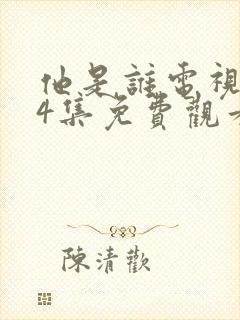 他是誰電視
4集免費觀看
陳清歡